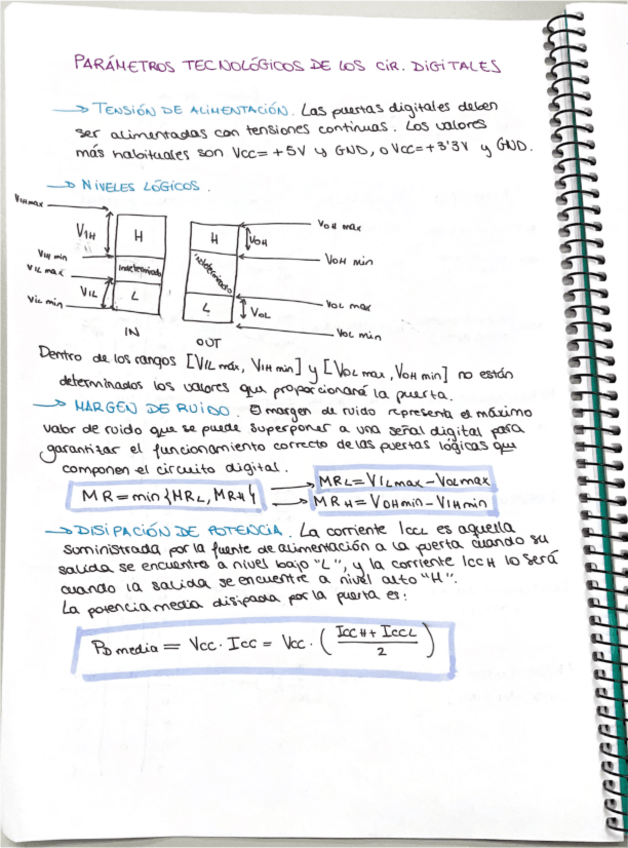 PARÁMETROS TECNOLÓGICOS DE LOS CIR. DIGITALES
→ TENSIÓN DE ALIMENTACIÓN. Las puertas digitales deben
ser alimentadas con tensiones continuas. Los valores
más habituales son Vcc= +5V y GND, o Vcc=+3'3V y GND.
→ NIVELES LÓGICOS.
VIH max
VIH
H
VIH min
indeterminado
VIL max
VIL
L
VIL min
IN
H
VOH
VOH max
VOH min
indeterminado
L
VOL
VOL max
VOL min
OUT
Dentro de los rangos [VIL máx, VIH min] y [VOL max, VOH min] no están
determinados los valores que proporcionará la puerta.
→ MARGEN DE RUIDO. El margen de ruido representa el máximo
valor de ruido que se puede superponer a una señal digital para
garantizar el funcionamiento correcto de las puertas lógicas que
componen el circuito digital.
MR = min {MRL, MRH}
→ MRL = VILmax - VOLmax
→ MRH = VOHmin - VIHmin
→ DISIPACIÓN DE POTENCIA. La corriente ICCL es aquella
suministrada por la fuente de alimentación a la puerta cuando su
salida se encuentra a nivel bajo "L", y la corriente ICCH lo será
cuando la salida se encuentre a nivel alto "H".
La potencia media disipada por la puerta es:
PD media = Vcc · Icc = Vcc · ( ICCH + ICCL / 2 )